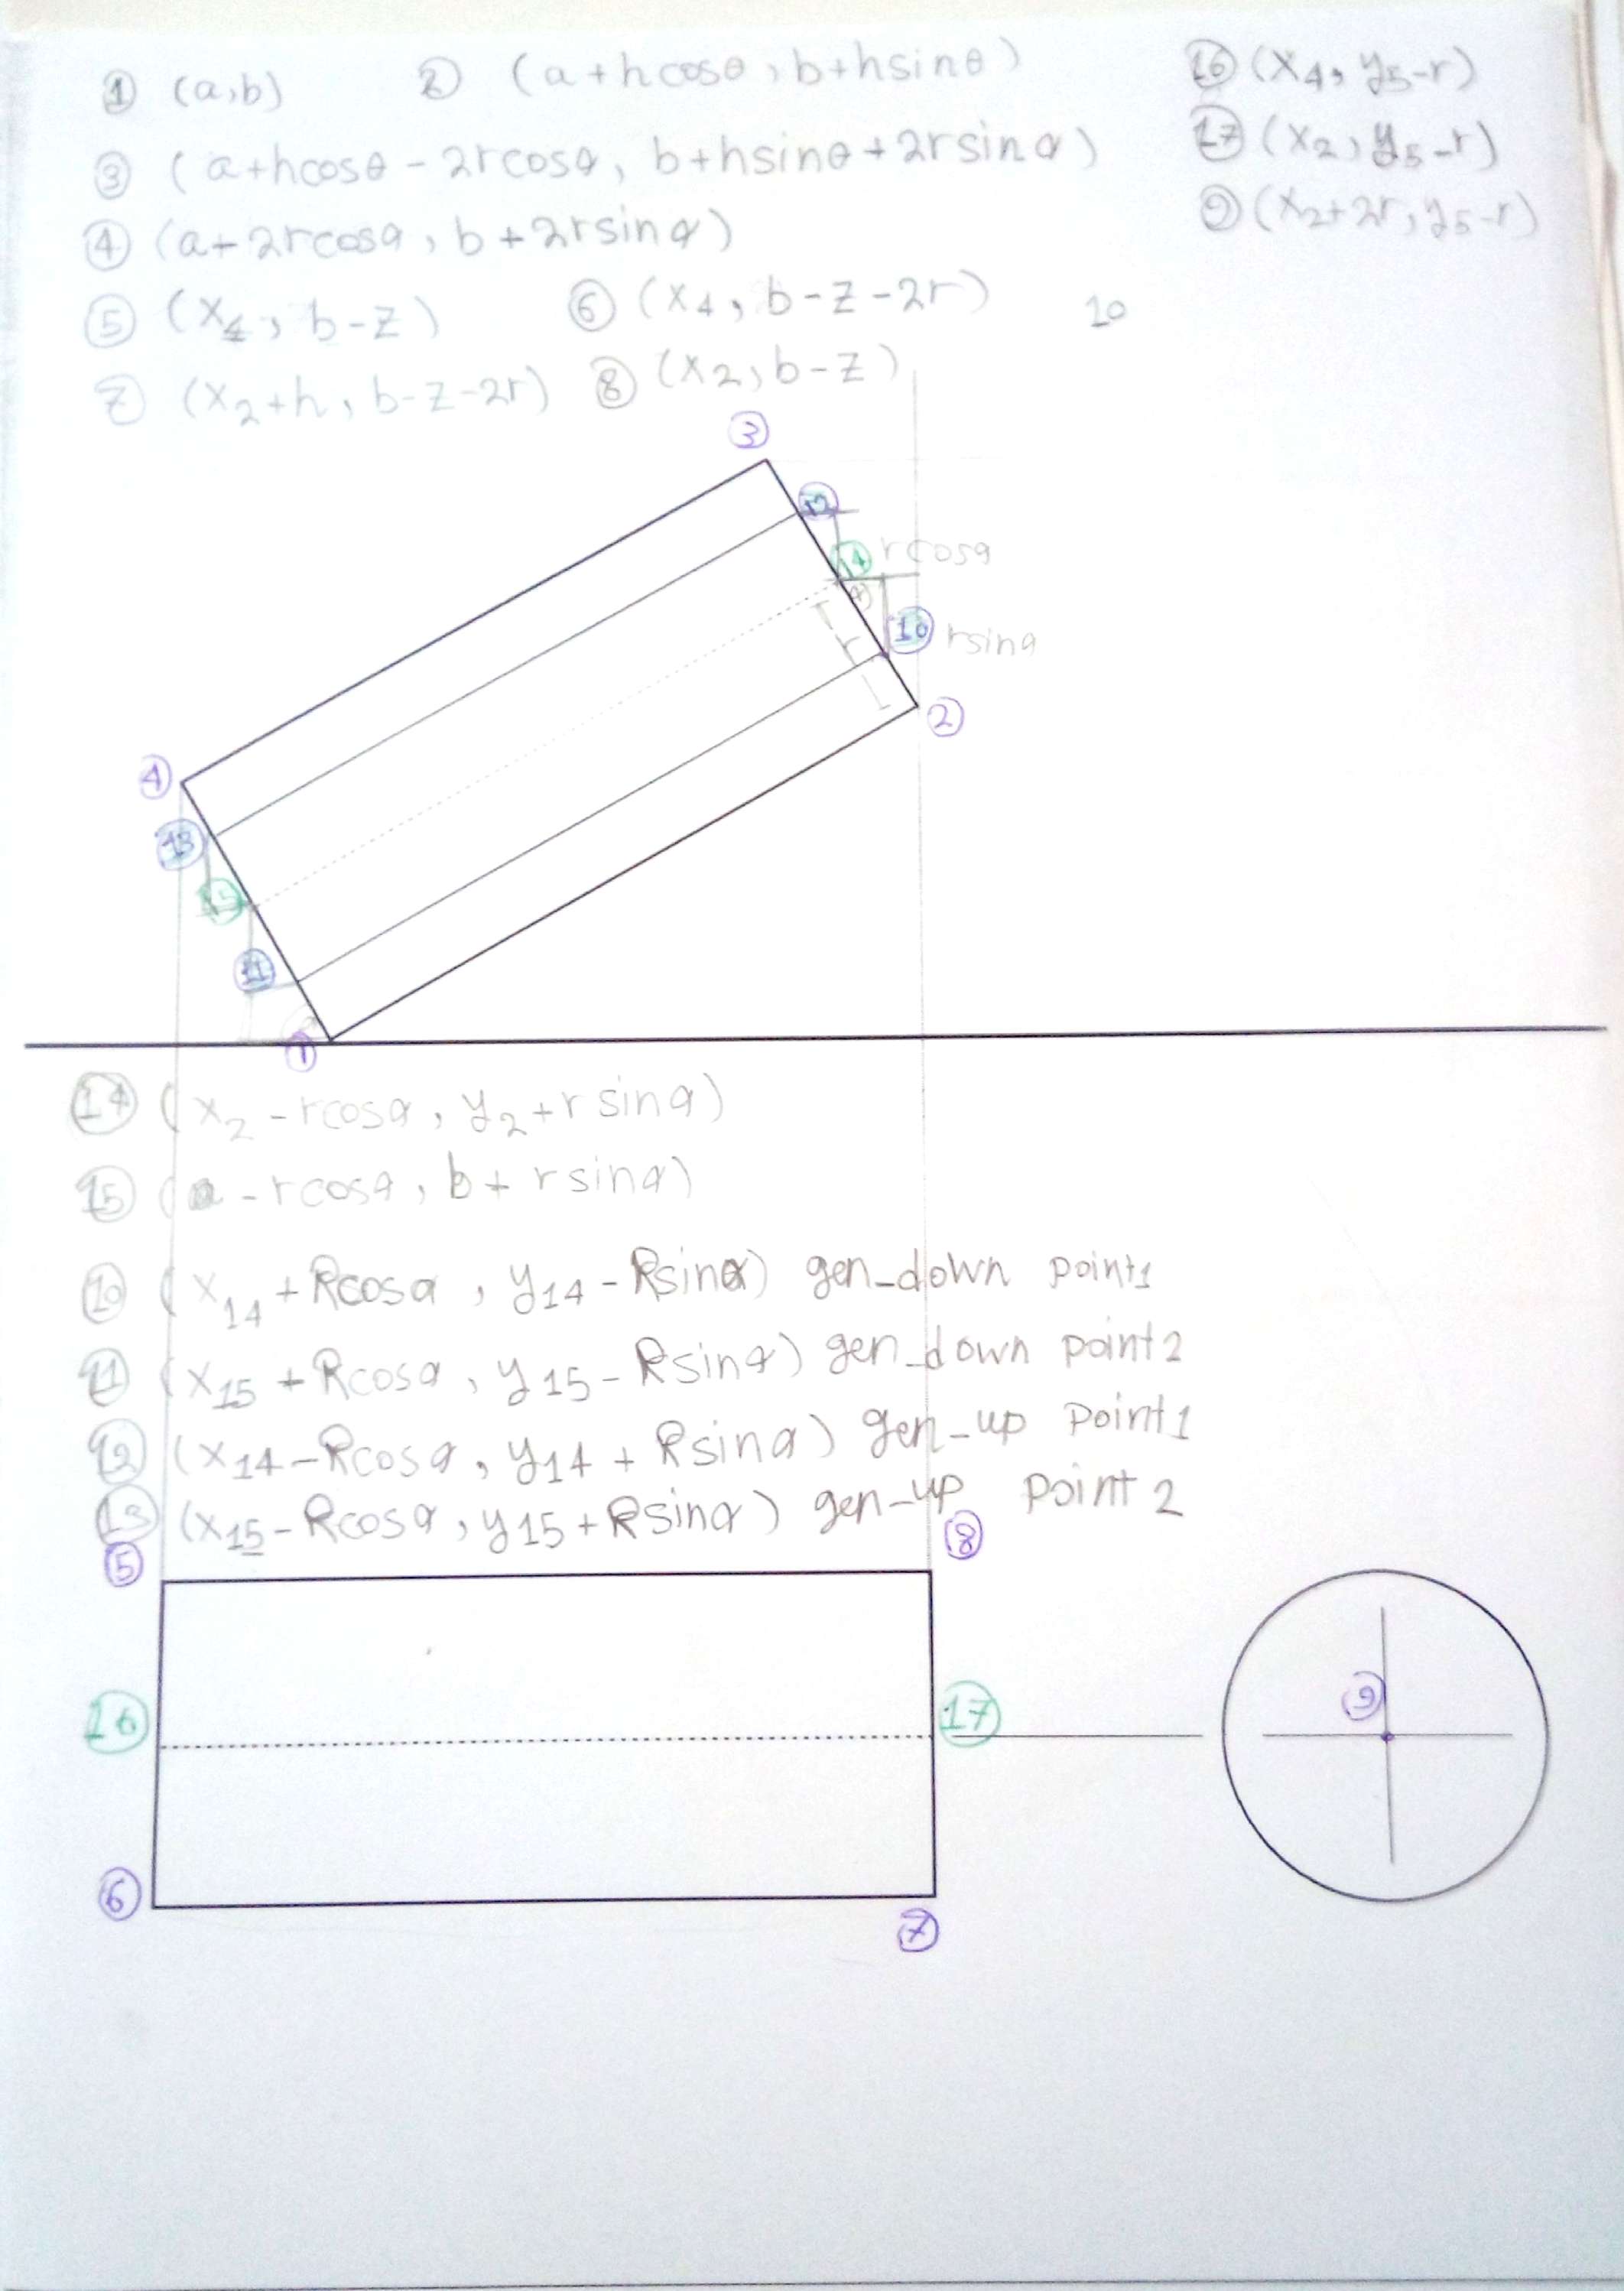 ① (a,b) ② (a+hcosθ, b+hsinθ) ⑯ (x4, y5-r)
③ (a+hcosθ-2rcosα, b+hsinθ+2rsinα) ⑰ (x2, y5-r)
④ (a-2rcosα, b+2rsinα) ⑨ (x2+2r, y5-r)
⑤ (x4, b-z) ⑥ (x4, b-z-2r) 10
⑦ (x2+h, b-z-2r) ⑧ (x2, b-z)
③
⑫
⑭ rcosα
α
r ⑩ rsinα
②
④
⑬
⑮
⑪
α
①
⑭ (x2-rcosα, y2+rsinα)
⑮ (a-rcosα, b+rsinα)
⑩ (x14+Rcosα, y14-Rsinα) gen_down point1
⑪ (x15+Rcosα, y15-Rsinα) gen_down point2
⑫ (x14-Rcosα, y14+Rsinα) gen_up point1
⑬ (x15-Rcosα, y15+Rsinα) gen_up point2
⑤ ⑧
⑯ ⑰ ⑨
⑥ ⑦